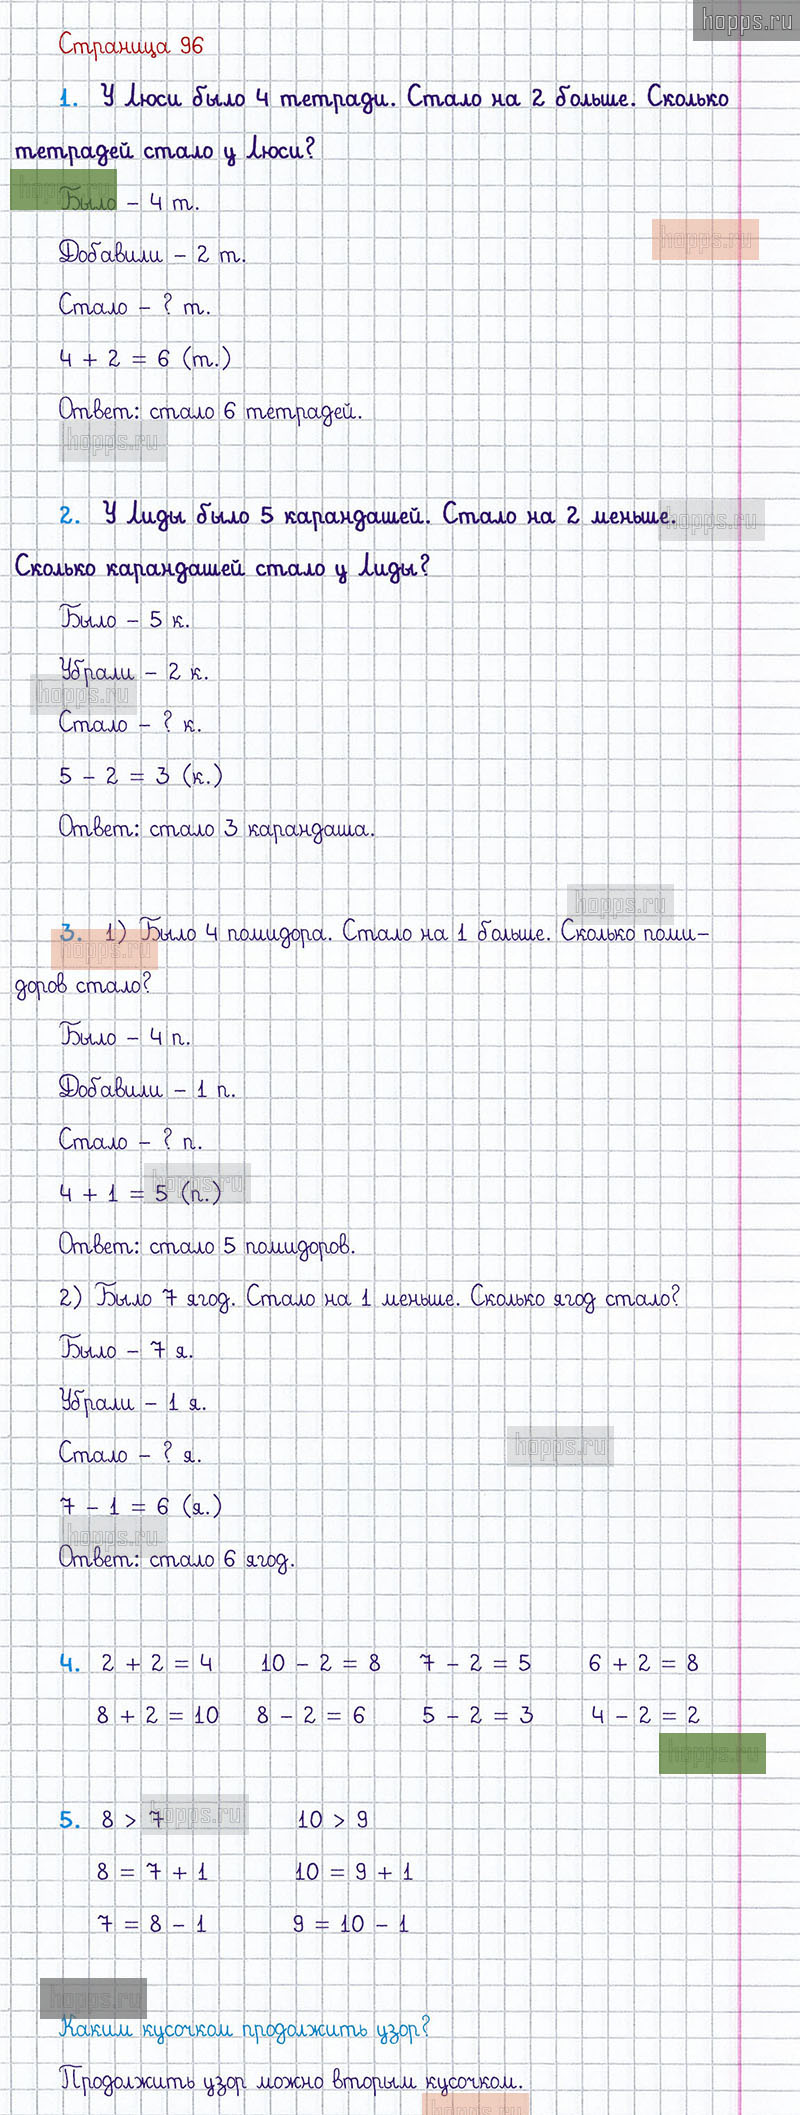 hopps.ru
Страница 96
1. У Люси было 4 тетради. Стало на 2 больше. Сколько
тетрадей стало у Люси?
hopps.ru
Было – 4 т.
hopps.ru
Добавили – 2 т.
Стало – ? т.
4 + 2 = 6 (т.)
Ответ: стало 6 тетрадей.
hopps.ru
2. У Лиды было 5 карандашей. Стало на 2 меньше.
hopps.ru
Сколько карандашей стало у Лиды?
Было – 5 к.
Убрали – 2 к.
hopps.ru
Стало – ? к.
5 – 2 = 3 (к.)
Ответ: стало 3 карандаша.
hopps.ru
3. 1) Было 4 помидора. Стало на 1 больше. Сколько поми–
hopps.ru
доров стало?
Было – 4 п.
Добавили – 1 п.
Стало – ? п.
4 + 1 = 5 (п.)
hopps.ru
Ответ: стало 5 помидоров.
2) Было 7 ягод. Стало на 1 меньше. Сколько ягод стало?
Было – 7 я.
Убрали – 1 я.
hopps.ru
Стало – ? я.
7 – 1 = 6 (я.)
hopps.ru
Ответ: стало 6 ягод.
4. 2 + 2 = 4 10 – 2 = 8 7 – 2 = 5 6 + 2 = 8
8 + 2 = 10 8 – 2 = 6 5 – 2 = 3 4 – 2 = 2
hopps.ru
5. 8 > 7 10 > 9
hopps.ru
8 = 7 + 1 10 = 9 + 1
7 = 8 – 1 9 = 10 – 1
hopps.ru
Каким кусочком продолжить узор?
Продолжить узор можно вторым кусочком.
hopps.ru